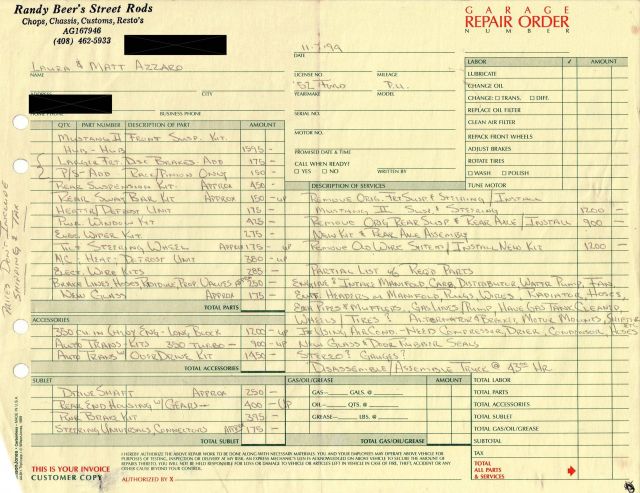 Randy Beer's Street Rods
Chops, Chassis, Customs, Resto's
AG167946
(408) 462-5933
GARAGE
REPAIR ORDER
NUMBER
11-7-94
DATE
LAURA & MATT AZZARO
NAME
ADDRESS CITY
HOME PHONE BUSINESS PHONE
LICENSE NO. MILEAGE
'52 FORD P.U.
YEAR/MAKE MODEL
SERIAL NO.
MOTOR NO.
PROMISED DATE & TIME
CALL WHEN READY?
YES NO WRITTEN BY
LABOR ✓ AMOUNT
LUBRICATE
CHANGE OIL
CHANGE: TRANS. DIFF.
REPLACE OIL FILTER
CLEAN AIR FILTER
REPACK FRONT WHEELS
ADJUST BRAKES
ROTATE TIRES
WASH POLISH
TUNE MOTOR
QTY. PART NUMBER DESCRIPTION OF PART AMOUNT
MUSTANG II FRONT SUSP. KIT.
HUB - HUB 1595 -
LARGER FRT. DISC BRAKES. ADD 175 -
P/S - ADD RACK/PINION ONLY 150 -
REAR SUSPENSION KIT. APPROX 450 -
REAR SWAY BAR KIT APPROX 150 - UP
HEATER/DEFROST UNIT 175 -
PWR WINDOW KIT 425 -
ELEC WIPER KIT 275 -
TILT STEERING WHEEL APPROX 175 - UP
A/C: HEAT: DEFROST UNIT 380 - UP
ELECT. WIRE KITS 285 -
BRAKE LINES, HOSES, PROP. VALVES 250 -
NEW GLASS APPROX 175 -
TOTAL PARTS
PRICES DON'T INCLUDE
SHIPPING & TAX
DESCRIPTION OF SERVICES
REMOVE ORIG. FRT SUSP & STEERING / INSTALL
MUSTANG II SUSP & STEERING 1200 -
REMOVE ORIG REAR SUSP & REAR AXLE / INSTALL 900 -
NEW KIT & REAR AXLE ASSEMBLY
REMOVE OLD WIRE SYSTEM / INSTALL NEW KIT 1200 -
PARTIAL LIST OF REQ'D PARTS
ENGINE & INTAKE MANIFOLD, CARB, DISTRIBUTOR WATER PUMP, FAN,
EXH. HEADERS OR MANIFOLD, PLUGS, WIRES, RADIATOR, HOSES,
EXH. PIPES & MUFFLERS, GAS LINES PUMP, HAVE GAS TANK CLEANED
WHEELS, TIRES & ALTERNATOR & BRACKET, MOTOR MOUNTS, SHIFTER ETC
IF USING AIR COND. - NEED COMPRESSOR, DRIER, CONDENSOR, HOSES
NEW GLASS & DOOR RUBBER SEALS
STEREO? GAUGES?
DISASSEMBLE/ASSEMBLE TRUCK @ 43.00 HR
ACCESSORIES
350 CU. IN CHEVY ENG - LONG BLOCK 1200 - UP
AUTO TRANS - KITS 350 TURBO - 900 - UP
AUTO TRANS W/ OVERDRIVE KIT 1450 -
TOTAL ACCESSORIES
SUBLET
DRIVE SHAFT APPROX 250 -
REAR END HOUSING W/GEARS 400 - UP
REAR BRAKE KIT 395 -
STEERING UNIVERSALS CONNECTORS APPROX 175 -
TOTAL SUBLET
GAS/OIL/GREASE AMOUNT
GAS- GALS. @
OIL- QTS. @
GREASE- LBS. @
TOTAL GAS/OIL/GREASE
TOTAL LABOR
TOTAL PARTS
TOTAL ACCESSORIES
TOTAL SUBLET
TOTAL GAS/OIL/GREASE
SUBTOTAL
TAX
TOTAL
ALL PARTS
& SERVICES
THIS IS YOUR INVOICE
CUSTOMER COPY
I HEREBY AUTHORIZE THE ABOVE REPAIR WORK TO BE DONE ALONG WITH NECESSARY MATERIALS. YOU AND YOUR EMPLOYEES MAY OPERATE ABOVE VEHICLE FOR PURPOSES OF TESTING, INSPECTION OR DELIVERY AT MY RISK. AN EXPRESS MECHANIC'S LIEN IS ACKNOWLEDGED ON ABOVE VEHICLE TO SECURE THE AMOUNT OF REPAIRS THERETO. YOU WILL NOT BE HELD RESPONSIBLE FOR LOSS OR DAMAGE TO VEHICLE OR ARTICLES LEFT IN VEHICLE IN CASE OF FIRE, THEFT, ACCIDENT OR ANY OTHER CAUSE BEYOND YOUR CONTROL.
AUTHORIZED BY X